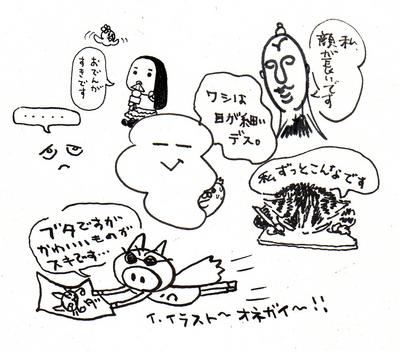 おでんが
すきです
私、
顔が長いです
......
ワシは
目が細い
デス。
私ずっとこんなです
ブタですが
かわいいものが
スキです…
イ、イラスト〜 オネガイ〜!!